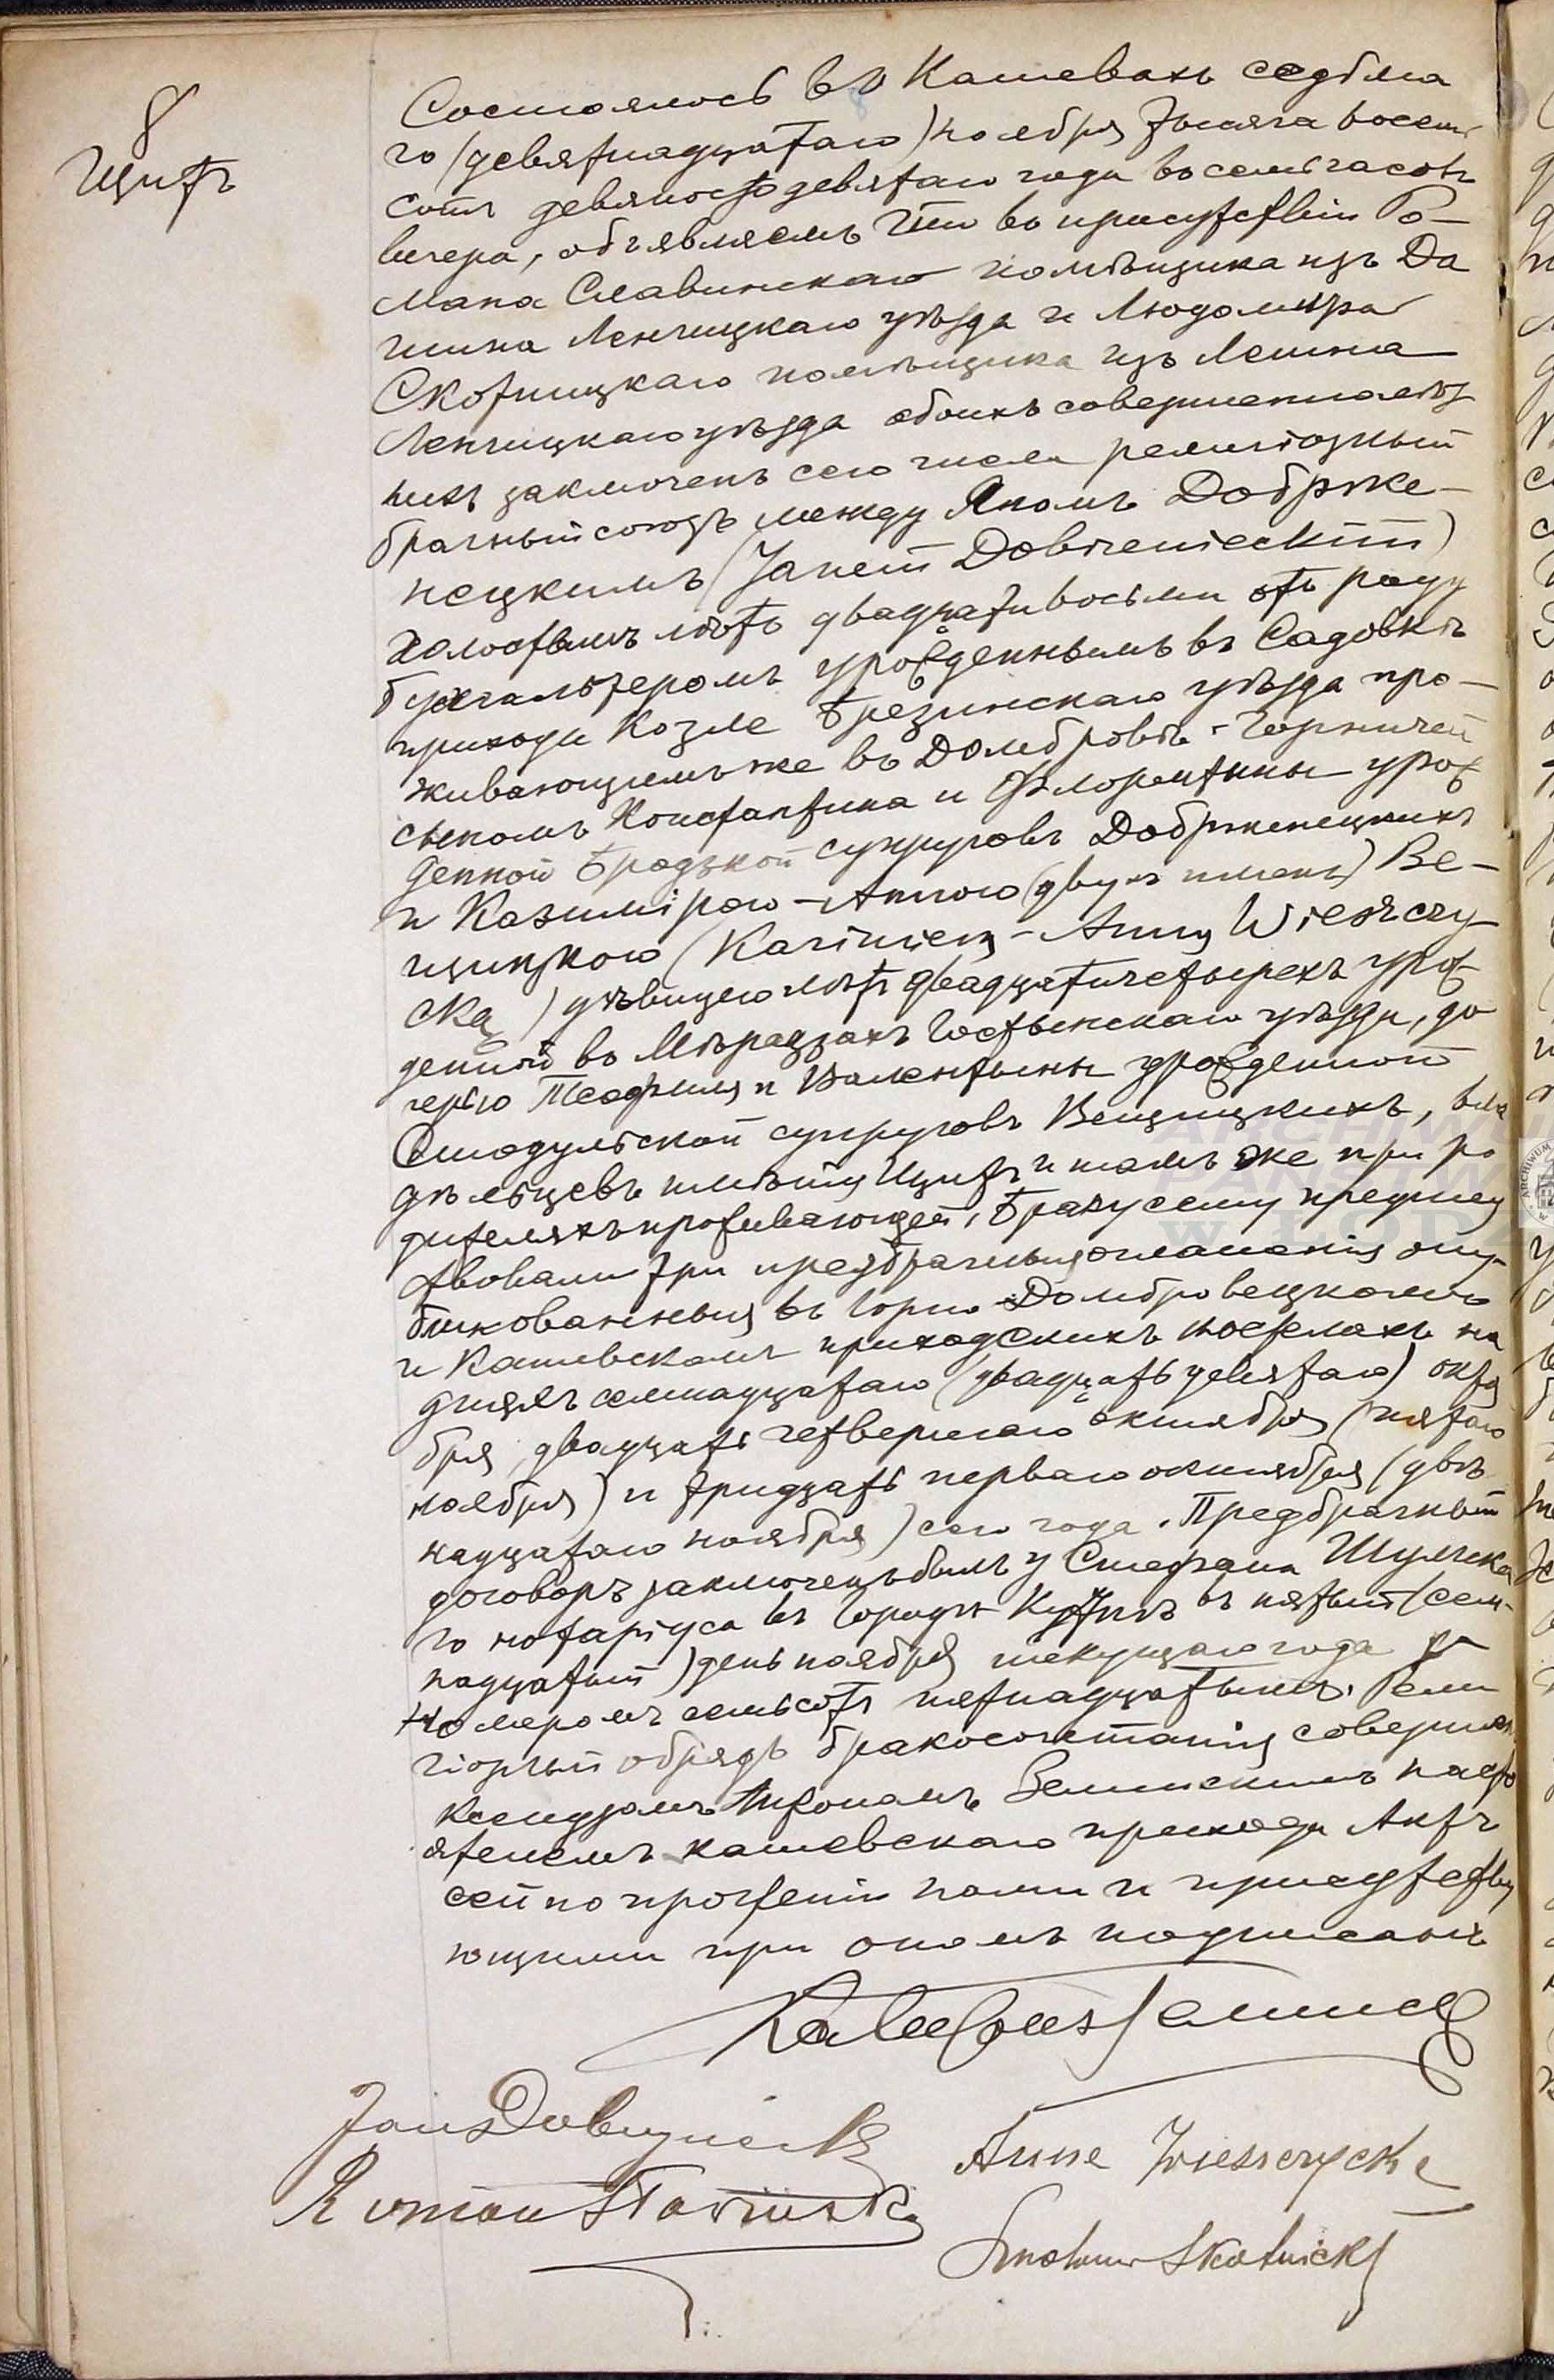 8
Щитъ
Состоялось въ Кашевахъ седьма
го (девятнадцатаго) ноября тысяча восемь
сотъ девяносто девятаго года въ семь часовъ
вечера, объявляемъ что въ присутствіи Ро-
мана Славинскаго помѣщика изъ Да
шина Ленчицкаго уѣзда и Людомира
Скотницкаго помѣщика изъ
Ленчицкаго уѣзда обоихъ совершеннолѣт
нихъ заключенъ сего числа религіозный
брачный союзъ между Яномъ Добрже-
нецкимъ (Janem Dobrzenieckim)
холостымъ лѣтъ двадцати восьми отъ роду
бухгалтеромъ урожденнымъ въ Садовкѣ
прихода Козле Брезинскаго уѣзда про-
живающимъ же въ Домбровѣ-Горничей
сыномъ Константина и Флорентины урож
денной супруговъ Добрженецкихъ
и Казимірою-Анною (двухъ именъ) Ве-
щицкою (Kazimierą-Anną Wieszczy-
cką) дѣвицею лѣтъ двадцати четырехъ урож
денной въ Гостынскаго уѣзда, до
черью Теофиля и Валентыны урожденной
супруговъ Вещицкихъ, вла
дѣльцевъ имѣнія Щитъ и тамъ же при ро
дителяхъ проживающей, Браку сему предшес
твовали три предбрачныя оглашенія опу-
бликованныя въ Горно-Домбровецкомъ
и Кашевскомъ приходскихъ костелахъ на
дняхъ семнадцатаго (двадцать девятаго) октя
бря, двадцать четвертаго октября (пятаго
ноября) и тридцать перваго октября (двѣ
надцатаго ноября) сего года. Предбрачный
договоръ заключенъ былъ у Стефана
го нотаріуса въ городѣ Кутнѣ въ пятый (сем-
надцатый) день ноября текущаго года за
номеромъ семьсотъ пятнадцатымъ. Рели
гіозный обрядъ бракосочетанія совершенъ
ксендзомъ Антономъ Земинскимъ насто
ятелемъ Кашевскаго прихода Актъ
сей по прочтеніи нами и присутству
ющими при ономъ подписанъ
Jan Dobrzyniecki
Anna Wieszczycka
Roman Sławiński
Skotnicki